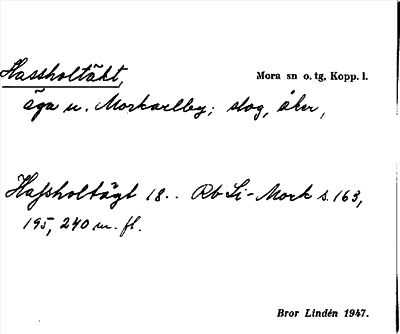 Hassholtäkt,
Mora sn o. tg, Kopp. l.
äga u. Morkarlby; slog, åker,
Hassholtägt 18.. Rb Si-Mork s. 163,
195, 240 m. fl.
Bror Lindén 1947.